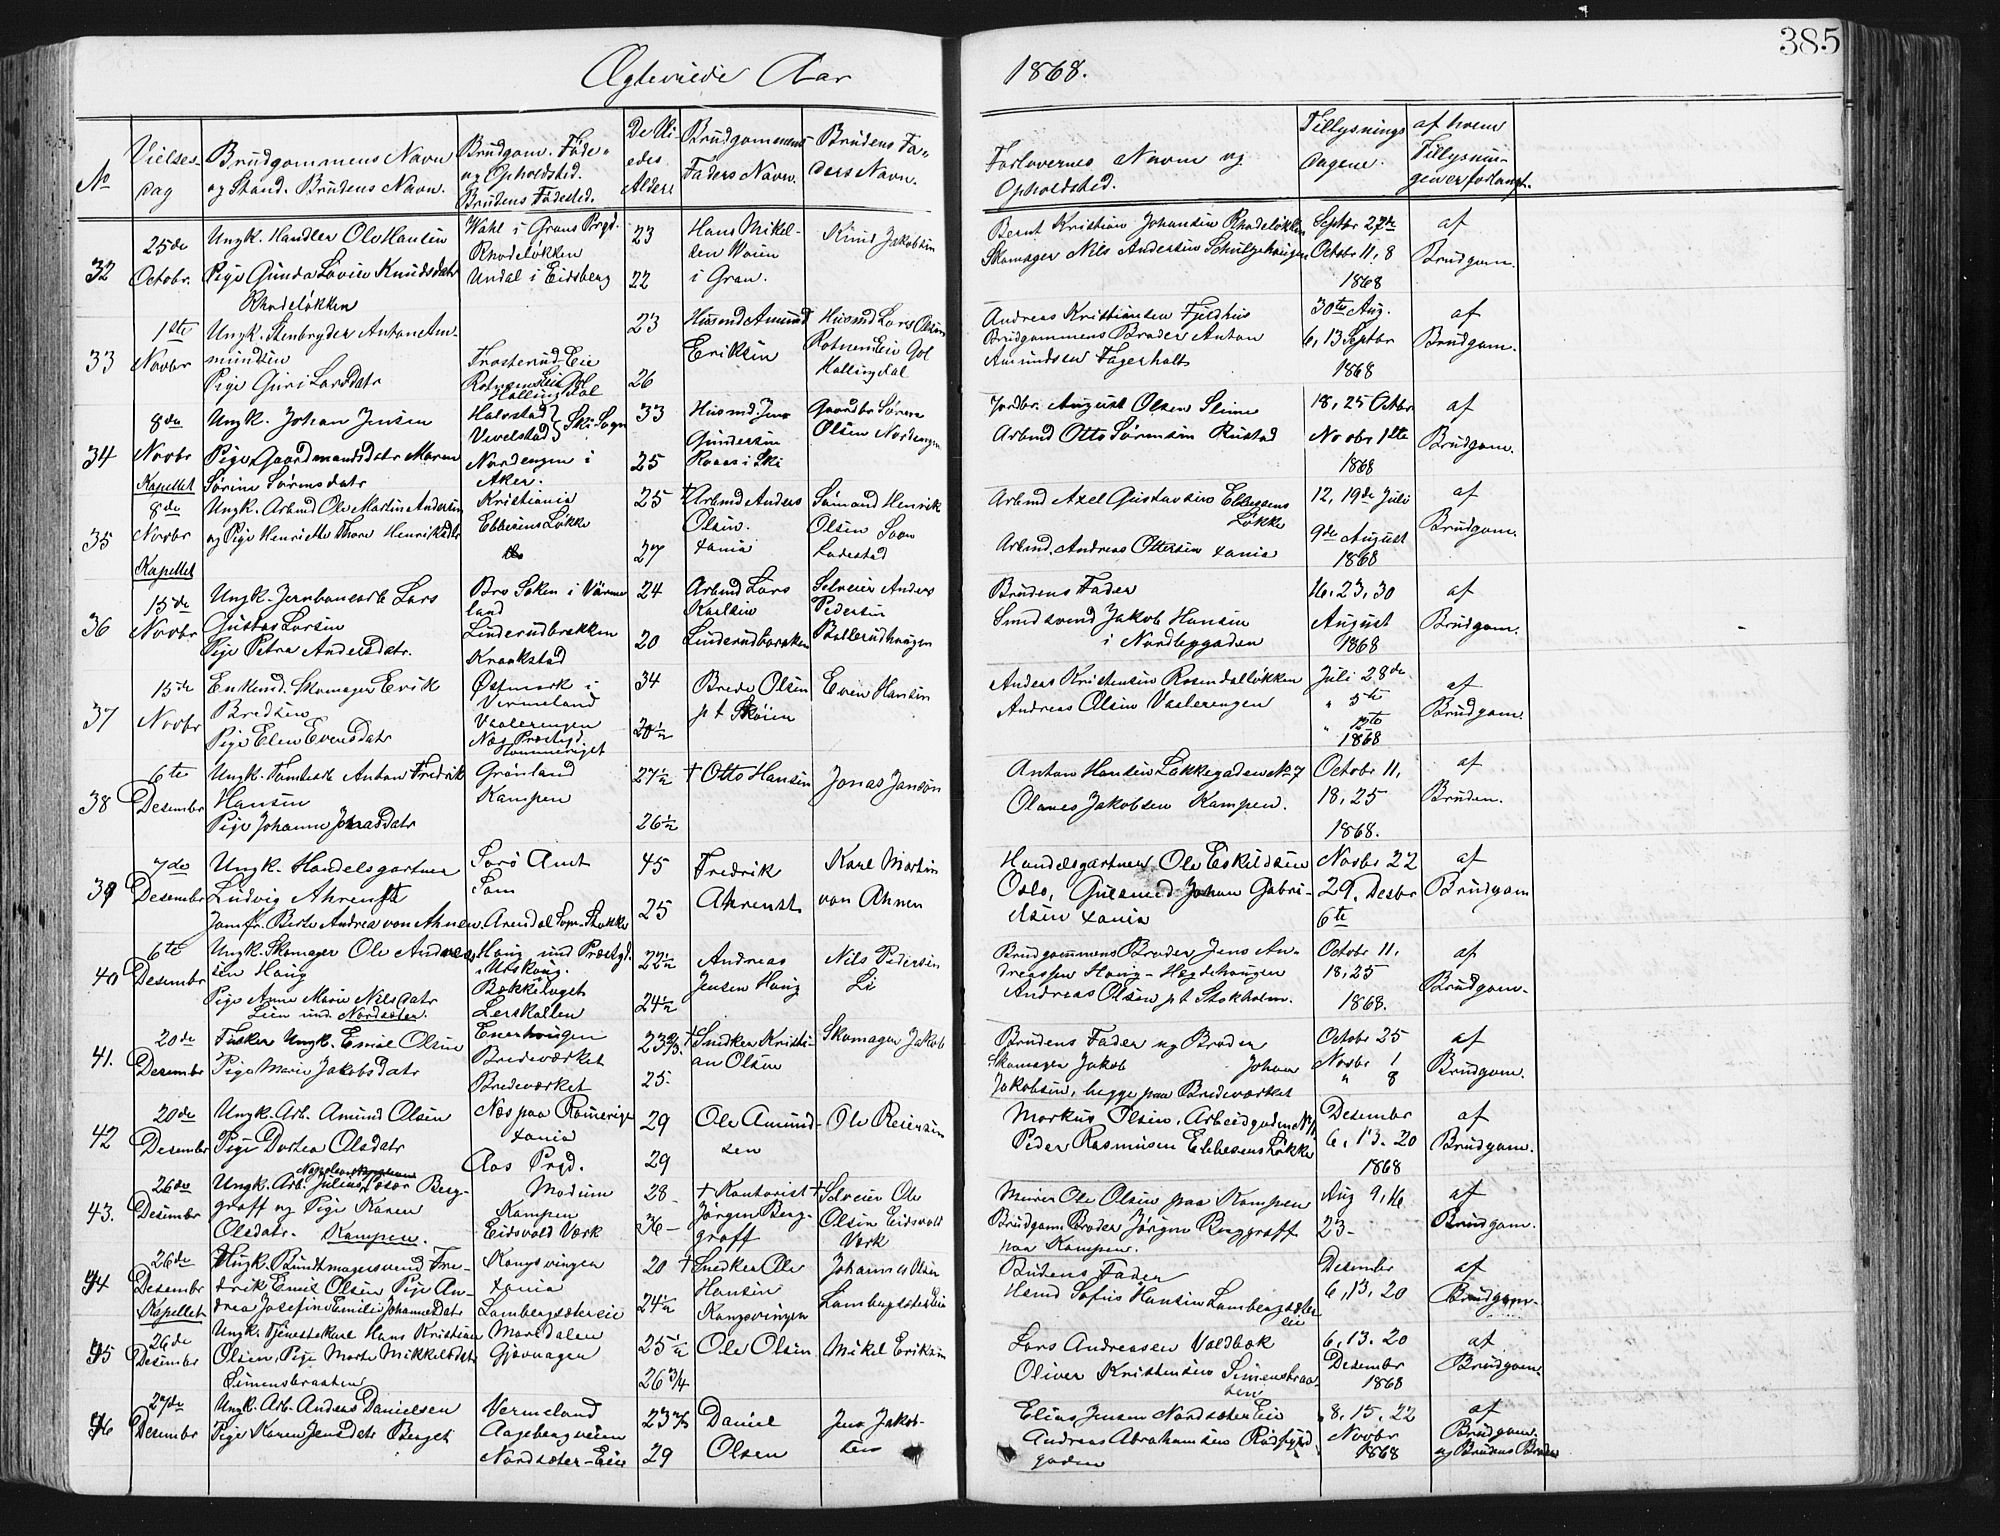 385
Ægteviede Aar 1868.
No
Vielses dag
Brudgommens Navn og Stand. Brudens Navn.
Brudgom. Føde- og Opholdsted. Brudens Fødested.
De Vi-edes Alder
Brudgommens Faders Navn.
Brudens Fa-ders Navn.
Forlovernes Navn og Opholdsted.
Tillysnings Dagene.
af hvem Tillysnin-gen er forlangt.
32
25de Octobr.
Ungk. Handler Ole Hansen
Pige Gunda Lovise Knudsdatr
Rhodeløkken
Wahl i Grans Prgd.
Rhodeløkken
Undal i Eidsberg
23
22
Hans Mikel-
sen Woien
i Gran.
Knud Jakobsen
Bernt Kristian Johansen Rhodeløkken
Skomager Nils Andersen Schultzehaugen
Septbr 27de
Octobr 11, 8
1868
af
Brudgom.
33
1ste Novbr
Ungk. Stenbryder Anton Am-
mundsen
Pige Guri Larsdatr
Trosterud Eie
Rotneim Eie Gol
Hallingdal
23
26
Husmd Amund
Eriksen
Husmd Lars Olsen
Rotneim Eie Gol
Hallingdal
Andreas Kristiansen Fjeldhus
Brudgommens Broder Anton
Amundsen Fagerholt
30te Aug.
6, 13 Septbr
1868
af
Brudgom.
34
8de Novbr
Kapellet
Ungk. Johan Jensen
Pige, Gaardmandsdatr Maren
Sørine Sørensdatr
Halvstad
Vevelstad } Ski Sogn
Nordengen i
Aker.
33
25
Husmd. Jens
Gundersen
Roaas i Ski
Gaardbr Søren
Olsen Nordengen
Jordbr. August Olsen Slime
Arbmd Otto Sørensen Rustad
18, 25 Octbr
Novbr 1ste
1868
af
Brudgom.
35
8de Novbr
Kapellet
Ungk. Arbmd Ole Martin Andersen
og Pige Henriette Thora Henriksdatr
Kristiania
Ebbesens Løkke
do
25
27
† Arbmd Anders
Olsen.
Xania
Sømand Henrik
Olsen Soon
Ladested
Arbmd Axel Gustavsen Ebbesens
Løkke
Arbmd. Andreas Ottersen Xania
12, 19de Juli
9de August
1868
af
Brudgom.
36
15de Novbr
Ungk. Jernbanearb Lars
Gustav Larsen
Pige Petra Andersdatr.
Bro Soken i Värme
land
Linderudbrakken
Kraakstad
24
20
Arbmd Lars
Karlsen
Linderudbarakken
Selveier Anders
Pedersen
Bøllerudhaugen
Brudens Fader
Smedsvend Jakob Hansen
i Nordbyggaden
16, 23, 30
August
1868
af
Brudgom.
37
15de Novbr
Enkemd. Skomager Erik
Bredsen
Pige Elen Evensdatr
Østmark i
Vermeland
Vaalerengen
Næs Præstgd.
Hommeriget
34
20½
Brede Olsen
p.t Skøien
Even Hansen
Anders Kristensen Rosendalløkken
Andreas Olsen Vaalerengen
Juli 28de
" 5te
" 12te
1868
af
Brudgom.
38
6te Desember
Ungk. Tomtearb Anton Fredrik
Hansen
Pige Johanne Jonasdatr
Grønland
Kampen
27½
26½
† Otto Hansen
Jonas Janson
Anton Hansen Lakkegaden No 7
Olaves Jakobsen Kampen.
Octobr 11,
18, 25
1868.
af
Bruden.
39
7de Desember
Ungk. Handelsgartner
Ludvig Ahrenst
Jomfr. Birte Andrea von Ahnen
Sorø Amt
Lom
Arendal Sogn Stokke
45
25
Fredrik
Ahrenst
Karl Martin
von Ahnen
Handelsgartner Ole Eskildsen
Oslo, Guulsmed Johan Gabri-
elsen Xania
Novbr 22
29. Desbr
6te
af
Brudgom
40
6te Desember
Ungk. Skomager Ole Andreas
sen Haug
Pige Anne Marie Nilsdatr
Lien und. Nordsæter.
Haug und Præstgd.
i Ulskoug.
Bækkelaget
Lerskallen
22½
24½
Andreas
Jensen Haug
Nils Pedersen
Li
Brudgommens Broder Jens An-
dreassen Haug - Hegdehaugen
Andreas Olsen p.t Stokholm.
Octobr 11.
18, 25
1868.
af
Brudgom.
41.
20de Desember
Fusker Ungk. Emil Olsen
Pige Marie Jakobsdatr
Enerhaugen
Bredeværket
Bredeværket
23⅔.
25.
† Snedker Kristi-
an Olsen
Skomager Jakob
Brudens Fader og Broder
Skomager Jakob Johan
Jakobsen, begge paa Bredeværket
Octobr 25
Novbr 1
" 8
af
Brudgom.
42
20de Desember
Ungk. Arb. Amund Olsen
Pige Dortea Olsdatr
Næs paa Romerige
Xania
Aas Prgd.
29
29
Ole Amund-
sen
Ole Reiersen
Markus Olsen, Arbeidgaden No 11
Peder Rasmusen Ebbesens Løkke
Desember
6, 13. 20
1868
af
Brudgom.
43.
26de Desember
Ungk. Arb. Julius Cæsar Berg-
graff og Pige Karen
Olsdatr. Kampen.
Modum
Kampen
Eidsvold Værk
28
36
† Kontorist
Jørgen Berg-
graff
† Selveier Ole
Olsen Eidsvold
Værk
Murer Ole Olsen paa Kampen
Brudgoms Broder Jørgen Berggraff
paa Kampen.
Aug 9, 16
23-
af
Brudgom.
44
26de Desember
Kapellet
Ungk. Bundtmagersvend Fre-
drik Emil Olsen Pige An-
drea Josefine Emilie Johannesdatr
Kongsvinger
Xania
Lambergsæter eie
20
24½
† Snedker Ole
Hansen
Kongsvinger
Johannes Olsen
Lambergsæter Eie
Brudens Fader
Hsmd Sofus Hansen Lambergsæter
eie
Desember
6, 13, 20
af
Brudgom.
45
26de Desember
Ungk. Tjenestekarl Hans Kristian
Olsen, Pige Marte Mikkelsdatr
Simensbraaten
Maridalen
Gjøvaagen
25½
26¾
Ole Olsen
Mikel Eriksen
Lars Andreasen Valdbæk
Oliver Kristensen Simensbraa-
ten
6, 13. 20
Desember
1868
af
Brudgom.
46
27de Desember
Ungk. Arb. Anders Danielsen
Pige Karen Jensdatr Berget
Vermeland
Aagebergveien
Nordsæter-Eie
23⅔
29
Daniel
Olsen
Jens Jakob-
sen
Elias Jensen Nordsæter Eie
Andreas Abrahamsen Rødfyld
gaden
8, 15, 22
Novbr
1868
af
Brudgom
og Brudens Broder